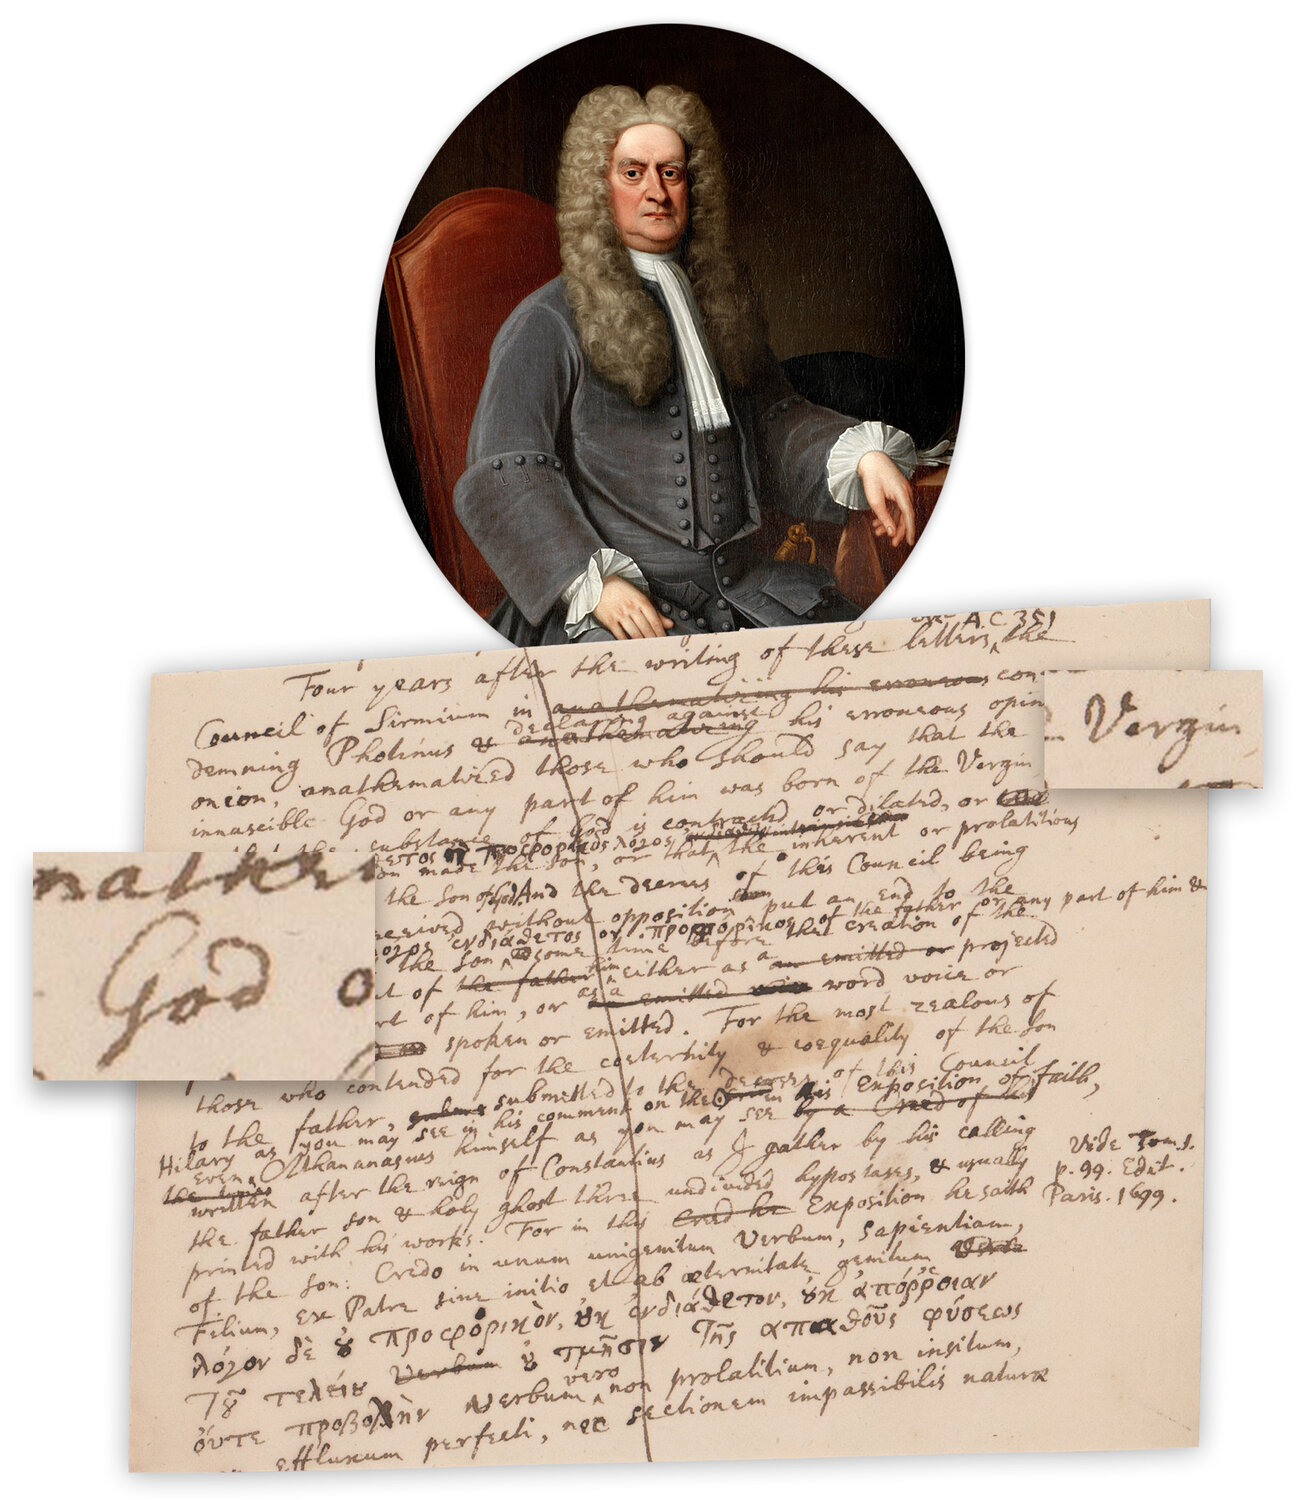 A.C. 351
Four years after the writing of these letters, the
Council of Sirmium in anathematizing his erroneous con-
declaring against
demning Photinus & anathematizing his erroneous opin
onion, anathematized those who should say that the
innascible God or any part of him was born of the Vergin
Vergin
substance of God is contracted or dilated, or
προφορικὸς λόγος
made the Son, or that the inherent or prolatitious
the Son of God. And the decrees of this Council being
received without opposition put an end to the
ἐνδιάθετος or προφορικος of the father or any part of him &
the Son some time before the creation of the
God
of the father him either as a an emitted or projected
of him, or as a emitted word voice or
spoken or emitted. For the most zealous of
those who contended for the coeternity & coequality of the Son
to the father, submitted to the decrees of this Council
Hilary as you may see in his comment on them in his Exposition of faith,
even Athananasius himself as you may see by a Creed of his
written after the reign of Constantius as I gather by his calling
the father son & holy ghost three undivided hypostases, & usually
printed with his works. For in this Creed he Exposition he saith
Vide Tom. 1.
p. 99. Edit.
Paris. 1699.
of the Son: Credo in unum unigenitum Verbum, Sapientiam,
Filium, ex Patre sine initio et ab æternitate genitum
λόγον δὲ ȣ προφορικὸν, ȣκ ἐνδιάθετον, ȣκ ἀπόῤῥοιαν
Τȣ τελείȣ Verbum ȣ τμῆσιν τῆς απαθοῦς φύσεως
ὄυτε προβολὴν Verbum vero non prolatitium, non insitum,
effluxum perfecti, nec sectionem impassibilis naturæ